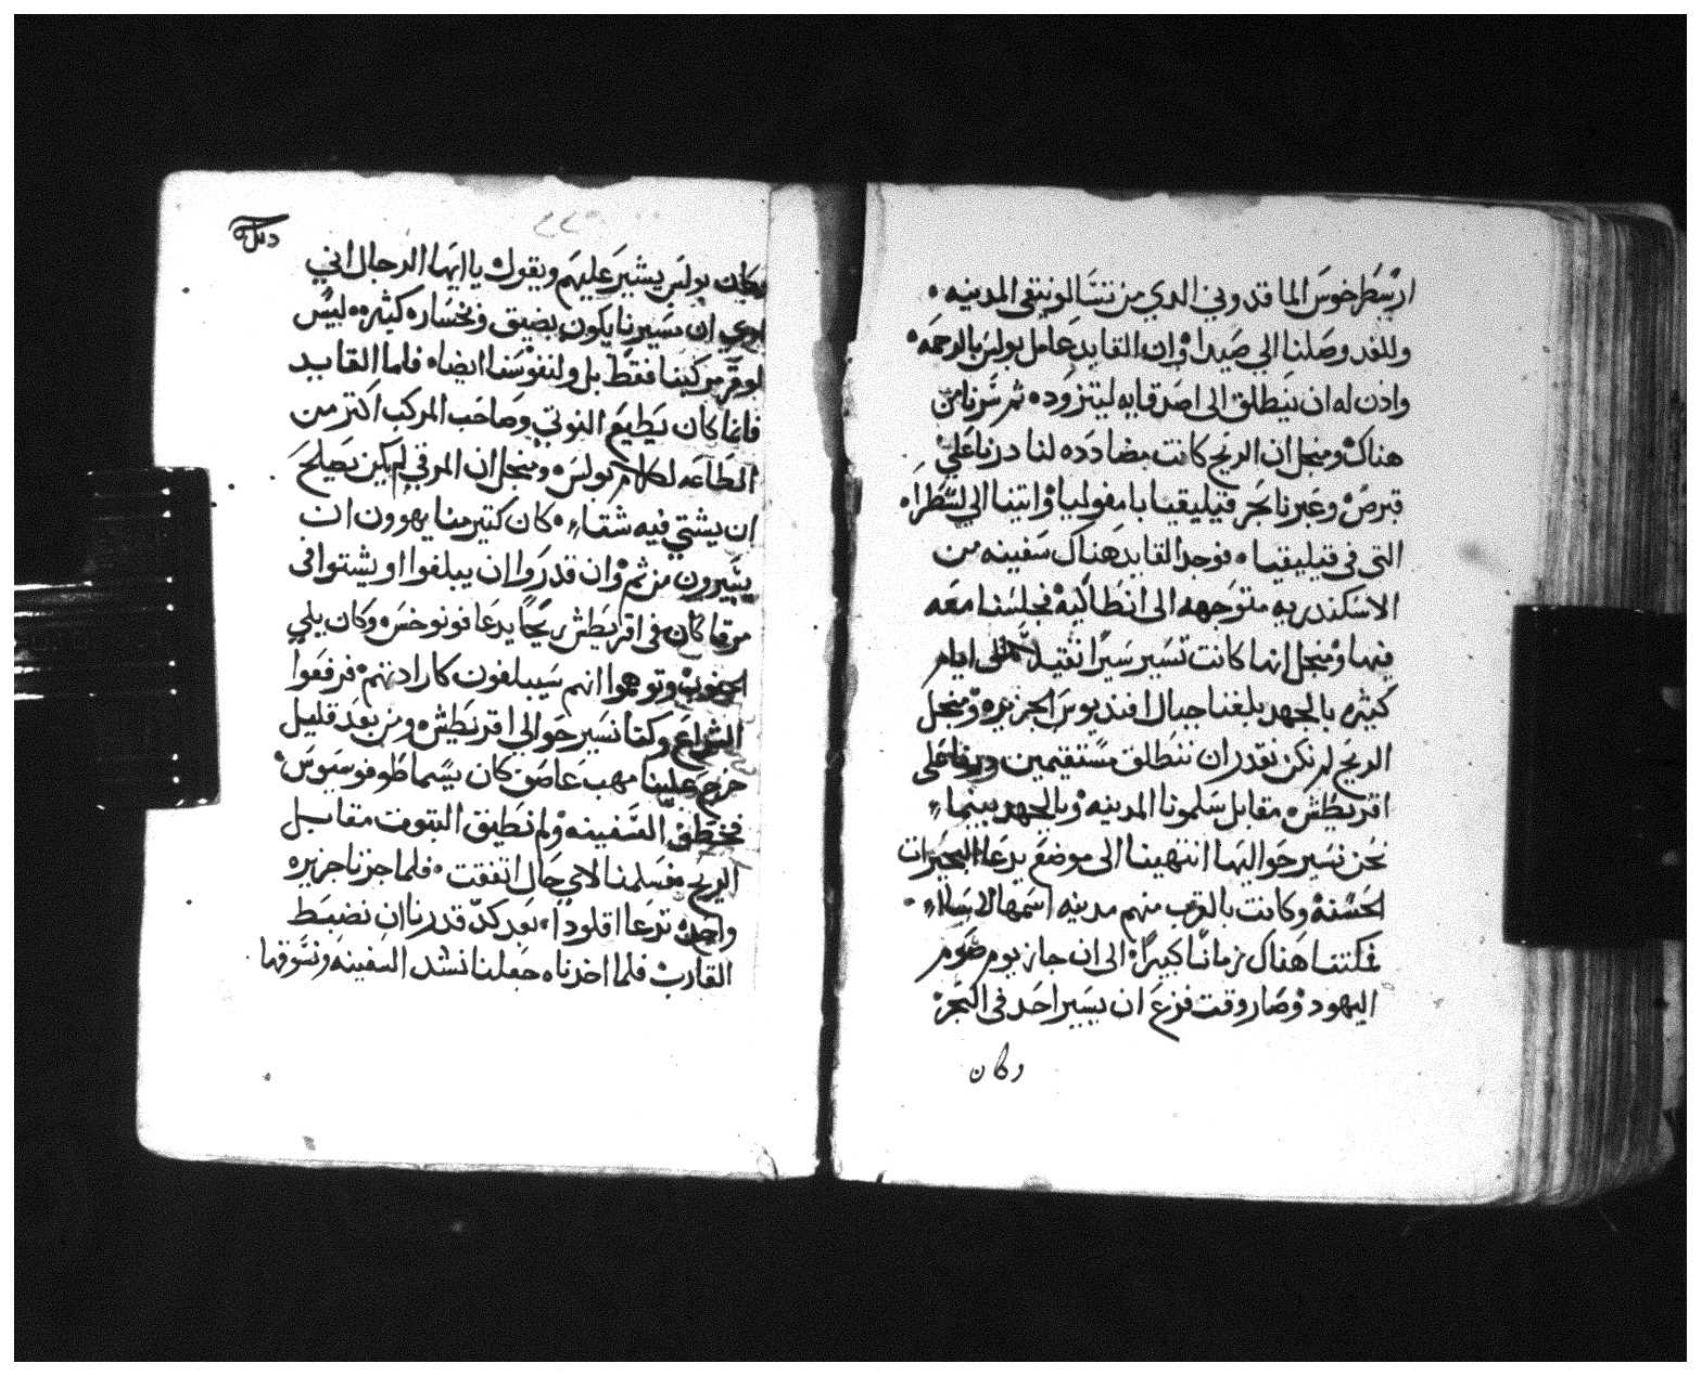 ارسطرخوس الماقدوني الدي من تسالونيقي المدينه
وللغد وصلنا الي صيدا وان القايد عامل بولس بالرحمه
وادن له ان ينطلق الى اصدقايه ليتزوده ثم سرنا من
هناك ومنجل ان الريح كانت مضادده لنا درنا علي
قبرص وعبرنا بحر قيليقيا بامفوليا واتينا الي لسطرا
التى فى قيليقيا فوجد القايد هناك سفينه من
الاسكندريه متوجهه الى انطاليه فجلسنا معه
فيها ومنجل انها كانت تسير سيرا تقيلا الى ايام
كثيره بالجهد بلغنا حيال افنديوس الجزيره ومنجل
الريح لم نكن نقدر ان ننطلق مستقيمين ودرنا على
اقريطش مقابل سلمونا المدينه وبالجهد بينما
نحن نسير حواليها انتهينا الى موضع يدعا البحيرات
الحسنه وكانت بالقرب منهم مدينه اسمها لاسا
فمكتنا هناك زمانا كبيرا الى ان جاز يوم صوم
اليهود وصار وقت فزع ان يسير احد فى البحر
وكان
وكان بولس يشير عليهم ويقول يا ايها الرجال اني
اري ان مسيرنا يكون بضيق وخساره كثيره ليس
لوقر مركبنا فقط بل ولنفوسنا ايضا فاما القايد
فانما كان يطيع النوتي وصاحب المركب اكتر من
الطاعه لكلام بولس ومنجل ان المرقي لم يكن يصلح
ان يشتي فيه شتا كان كتير منا يهوون ان
يسيرون من ثم وان قدروا ان يبلغوا او يشتوا فى
مرقا كان فى اقريطش ريحا يدعا فونوخس وكان يلي
الجنوب وتوهموا انهم سيبلغون كارادتهم فرفعوا
الشراع وكنا نسير حوالي اقريطش ومن بعد قليل
خرج علينا مهب عاصف كان يسما طوفوسوس
فخطف السفينه ولم نطيق التبوت مقابل
الريح فسلمنا لاي حال اتفقت فلما جزنا جزيره
واحده تدعا اقلودا بعد كد قدرنا ان نضبط
القارب فلما اخدناه جعلنا نشد السفينه ونسوقها